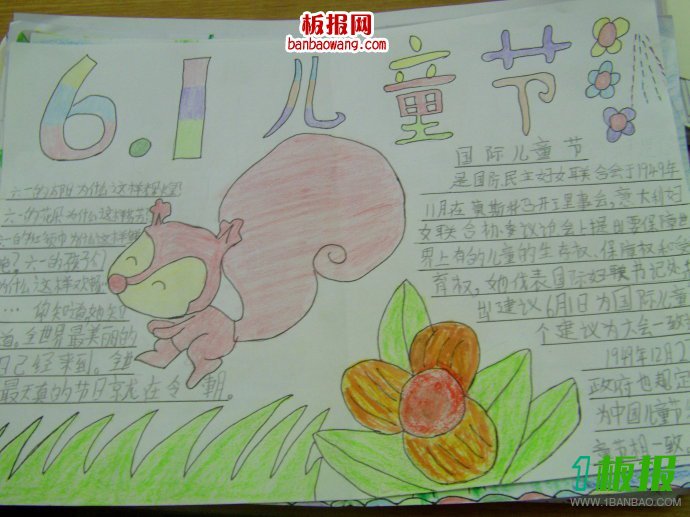 板报网
banbaowang.com
6.1儿童节
六一的 为什么这样
六一的花儿为什么这样
六一的红领巾为什么这样
六一的孩子们
为什么这样欢
… 你知道 知
道。全世界最美丽的
日已经来到。全世
最天真的节日京尤在今朝。
国际儿童节
是国际民主妇女联合会于1949年
11月在莫斯科召开理事会,意大利妇
女联合 会议 会上提出要保障世
界上有的儿童的生存权、保健权和
育权。她代表国际妇联书记处
出建议6月1日为国际儿童
个建议为大会一致
1949年12月2
政府也规定
为中国儿童节
童节相一致
1板报
WWW.1BANBAO.COM